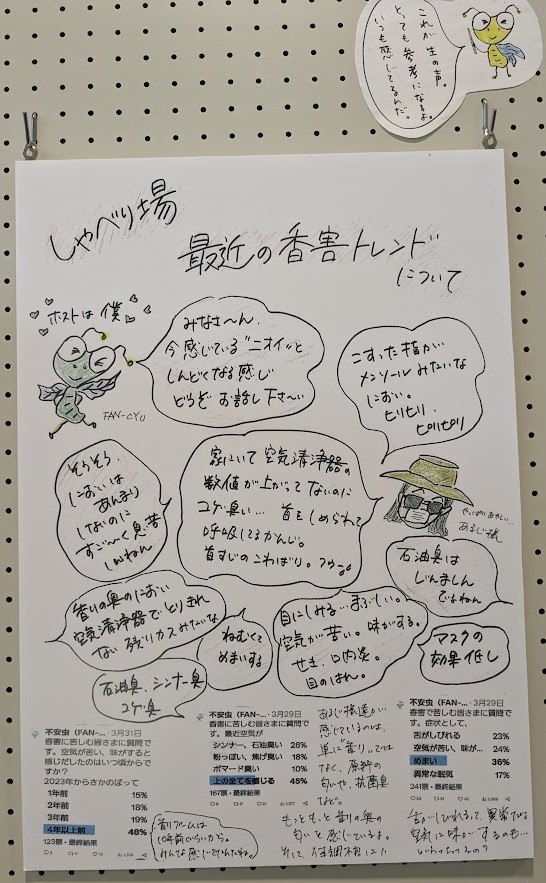 これが生の声。
とっても参考になるよ。
いつも感じてるんだ。
しゃべり場
最近の香害トレンド
について
ホストは僕
FAN-CYU
みなさ〜ん、
今感じている"ニオイ"と
しんどくなる感じ
どうぞ お話し下さ〜い
こすった指が
メンソールみたいな
におい。
ヒリヒリ、
ピリピリ
そうそう、
においは
あんまり
しないのに
すご〜く息苦
しいねん
家にいて空気清浄器の
数値が上がってないのに
コゲ臭い… 首をしめられて
呼吸してるかんじ。
首すじのこわばり。
あるじ様
石油臭は
じんましん
でるねん
香りの奥のにおい
空気清浄器でとりきれ
ない残りカスみたいな
ねむくて
めまいする
目にしみる…まぶしい。
空気が苦い。味がする。
せき、口内炎
目のはれ。
マスクの
効果低し
石油臭、シンナー臭
コゲ臭
不安虫（FAN-... ・3月31日
香害に苦しむ皆さまに質問で
す。空気が苦い、味がすると
感じだしたのはいつ頃からで
すか？
2023年からさかのぼって
1年前 15%
2年前 18%
3年前 19%
4年以上前 48%
123票・最終結果
香りブームは
10年前ぐらいから。
みんな感じてたんだね。
不安虫（FAN-... ・3月29日
香害に苦しむ皆さまに質問で
す。最近空気が
シンナー、石油臭い 28%
粉っぽい、焦げ臭い 18%
ポマード臭い 10%
上の全てを感じる 45%
167票・最終結果
あるじ様達が
感じているのは、
単に"香り"では
なく、原料の
匂いや、抗菌臭
など。
もっともっと香りの奥の
匂いと感じています。
そして、体調不良に!!
不安虫（FAN-... ・3月29日
香害で苦しむ皆さまに質問で
す。症状として、
舌がしびれる 23%
空気が苦い、味が... 24%
めまい 36%
異常な眠気 17%
241票・最終結果
舌がしびれるって、異常だよ
空気に味がするのも…